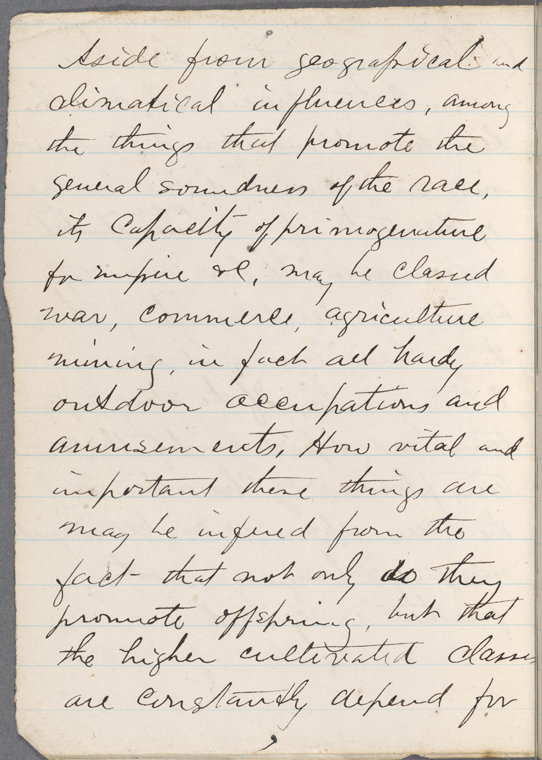 Aside from geograpical and
climatical influences, among
the things that promote the
general soundness of the race,
its capacity of primogeniture
for empire &c, may be classed
war, commerce, agriculture
mining, in fact all hardy
outdoor occupations and
amusements. How vital and
important these things are
may be infered from the
fact that not only do they
promote offspring, but that
the higher cultivated classes
are constantly depend for